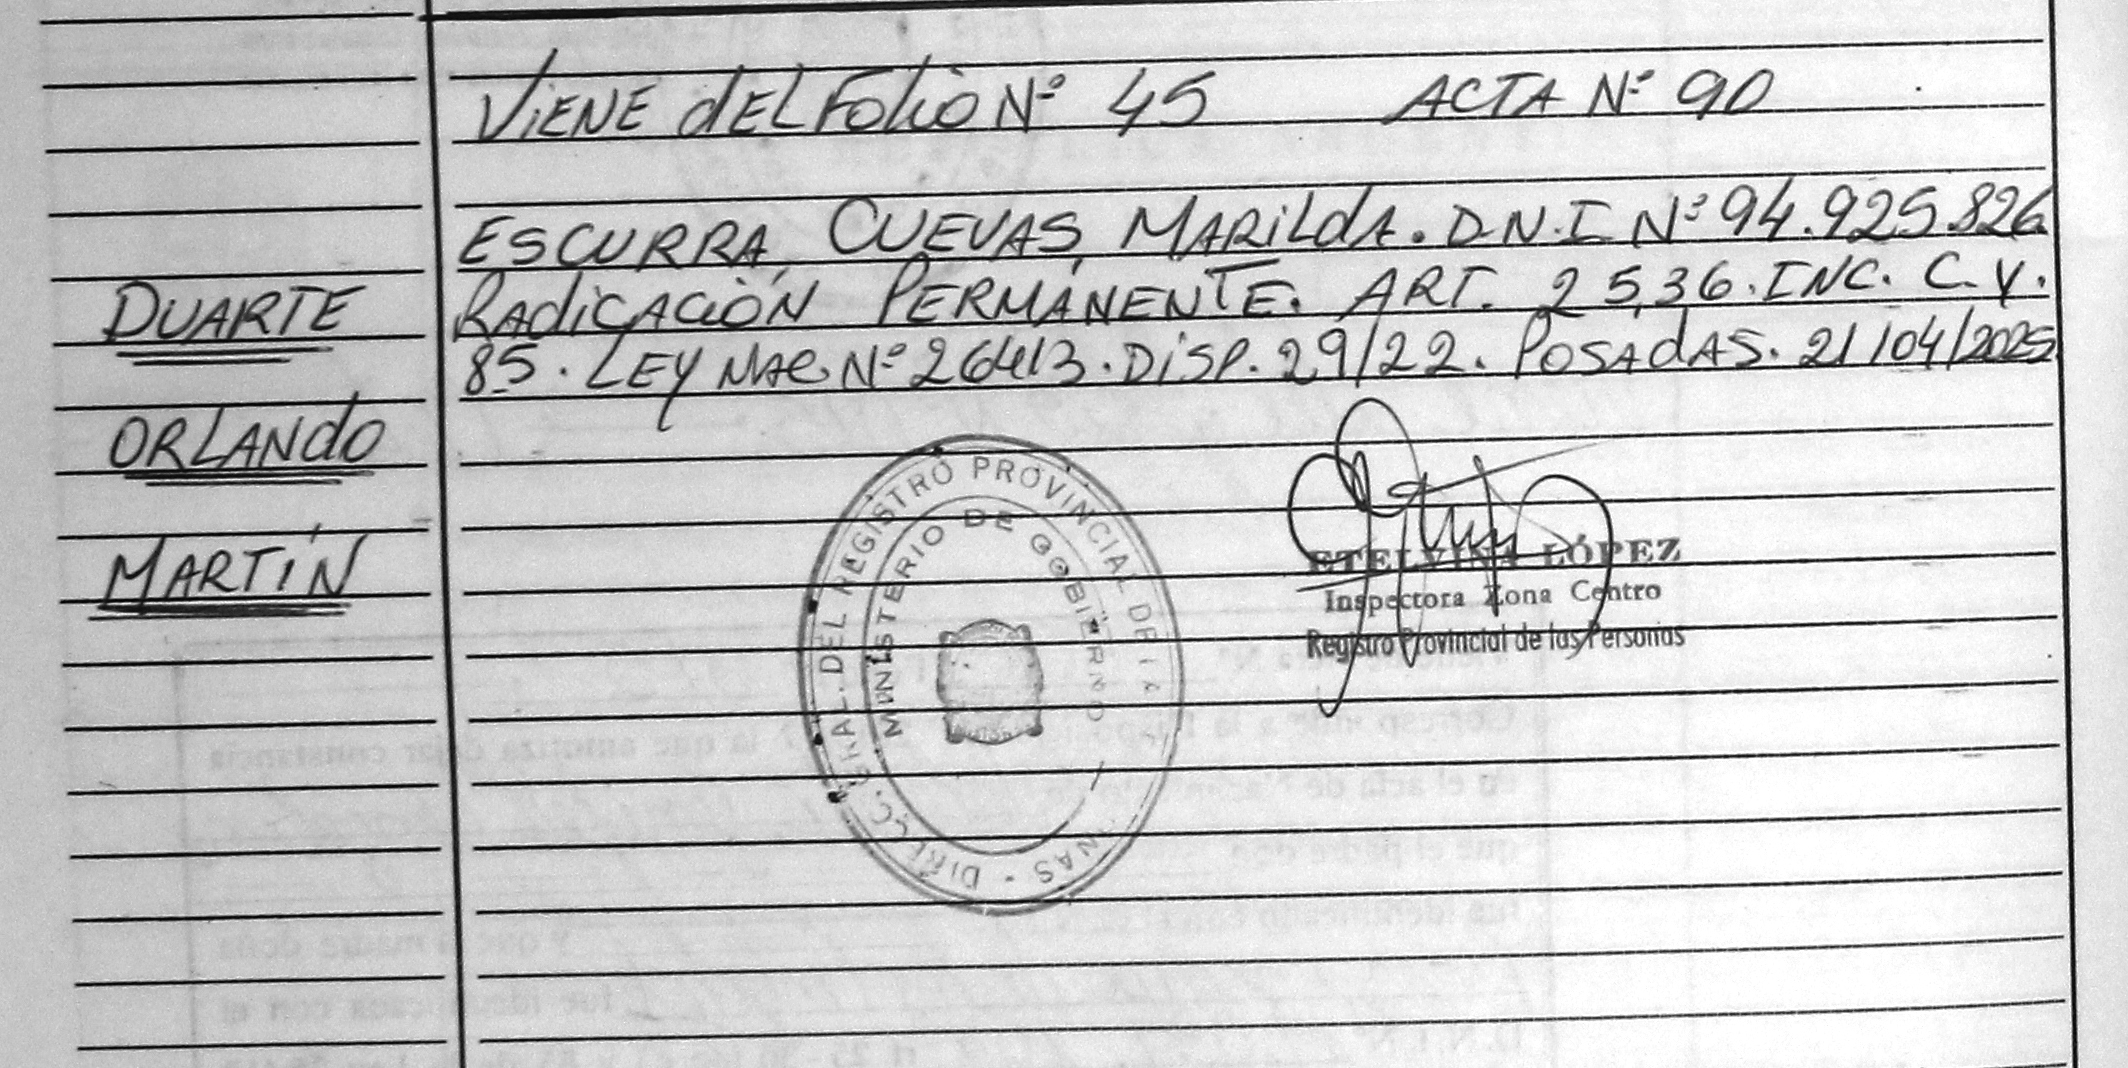 VIENE dEL FOLiO Nº 45 ACTA Nº 90
ESCURRA, CUEVAS, MARILdA. D.N.I Nº 94.925.826
RAdiCACIÓN PERMANENTE. ART. 25,36. INC. C. Y.
85. LEY NAC. Nº 26413. DiSP. 29/22. POSAdAS. 21/04/2025
DUARTE
ORLANdO
MARTÍN
DEL REGISTRO PROVINCIAL DE
MINISTERIO DE GOBIERNO
ETELVINA LÓPEZ
Inspectora Zona Centro
Registro Provincial de las Personas